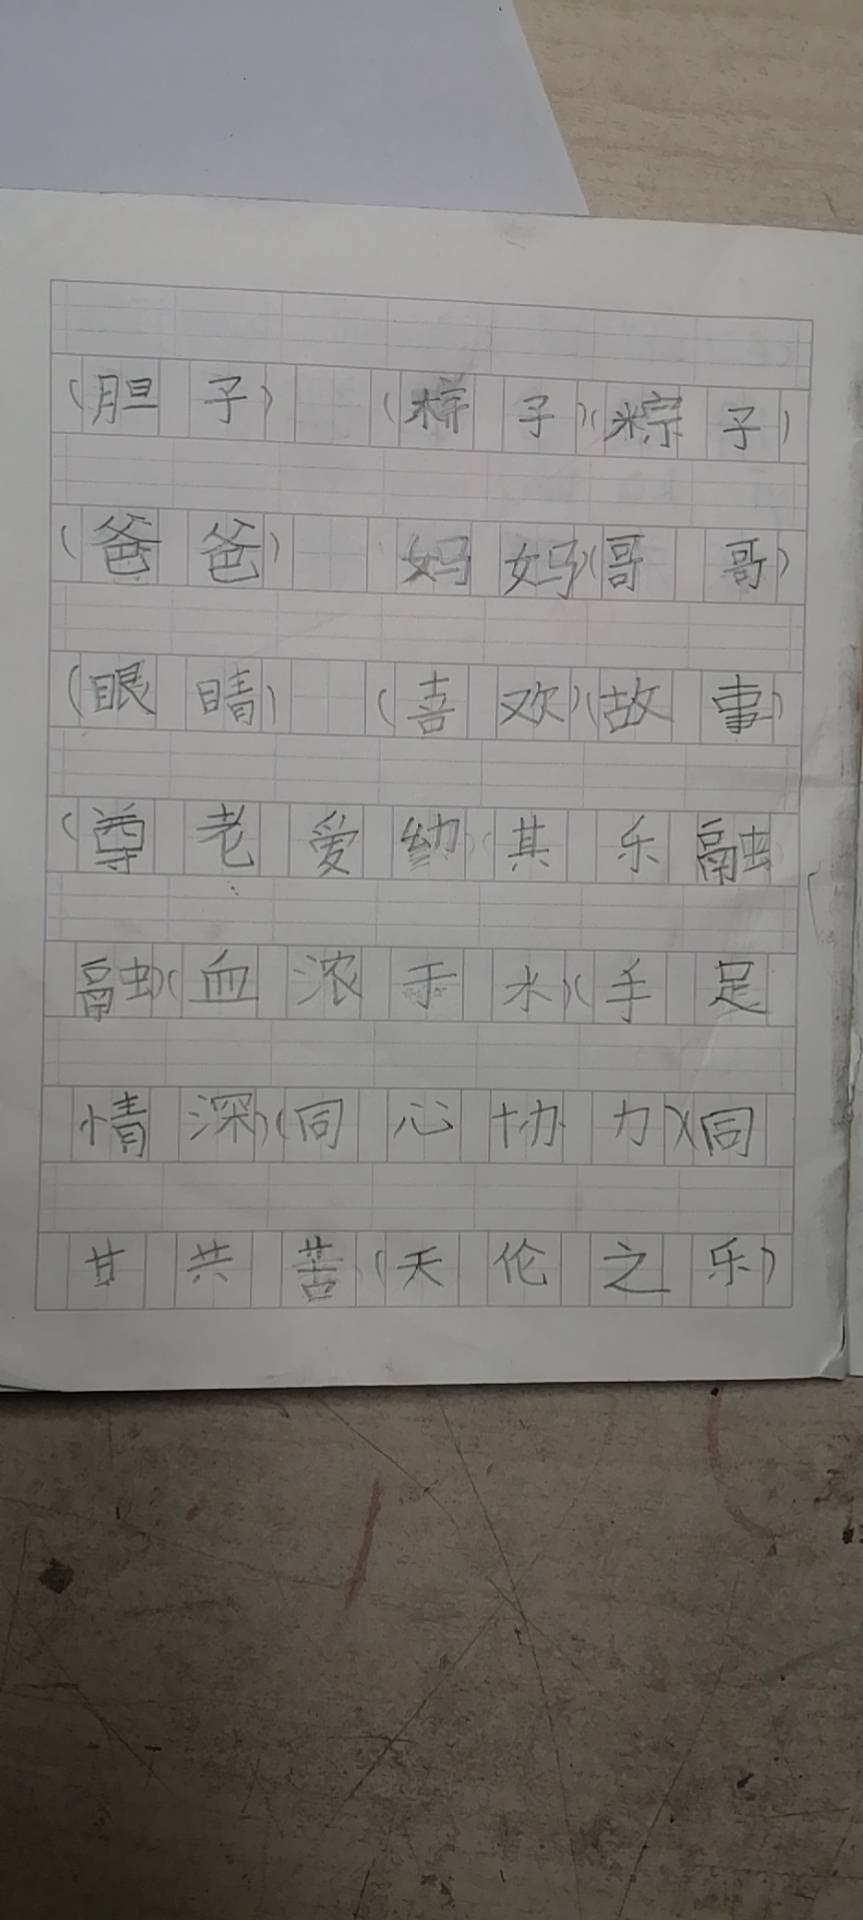 (胆子) (粽子)(粽子)
(爸爸) 妈妈(哥哥)
(眼睛) (喜欢)(故事)
(尊老爱幼)(其乐融
融)(血浓于水)(手足
情深)(同心协力)(同
甘共苦(天伦之乐)